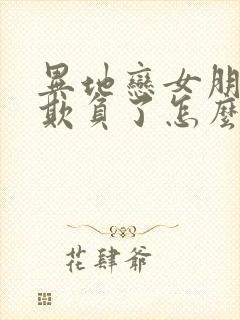 異地戀女朋
欺負了怎麼
花肆爺